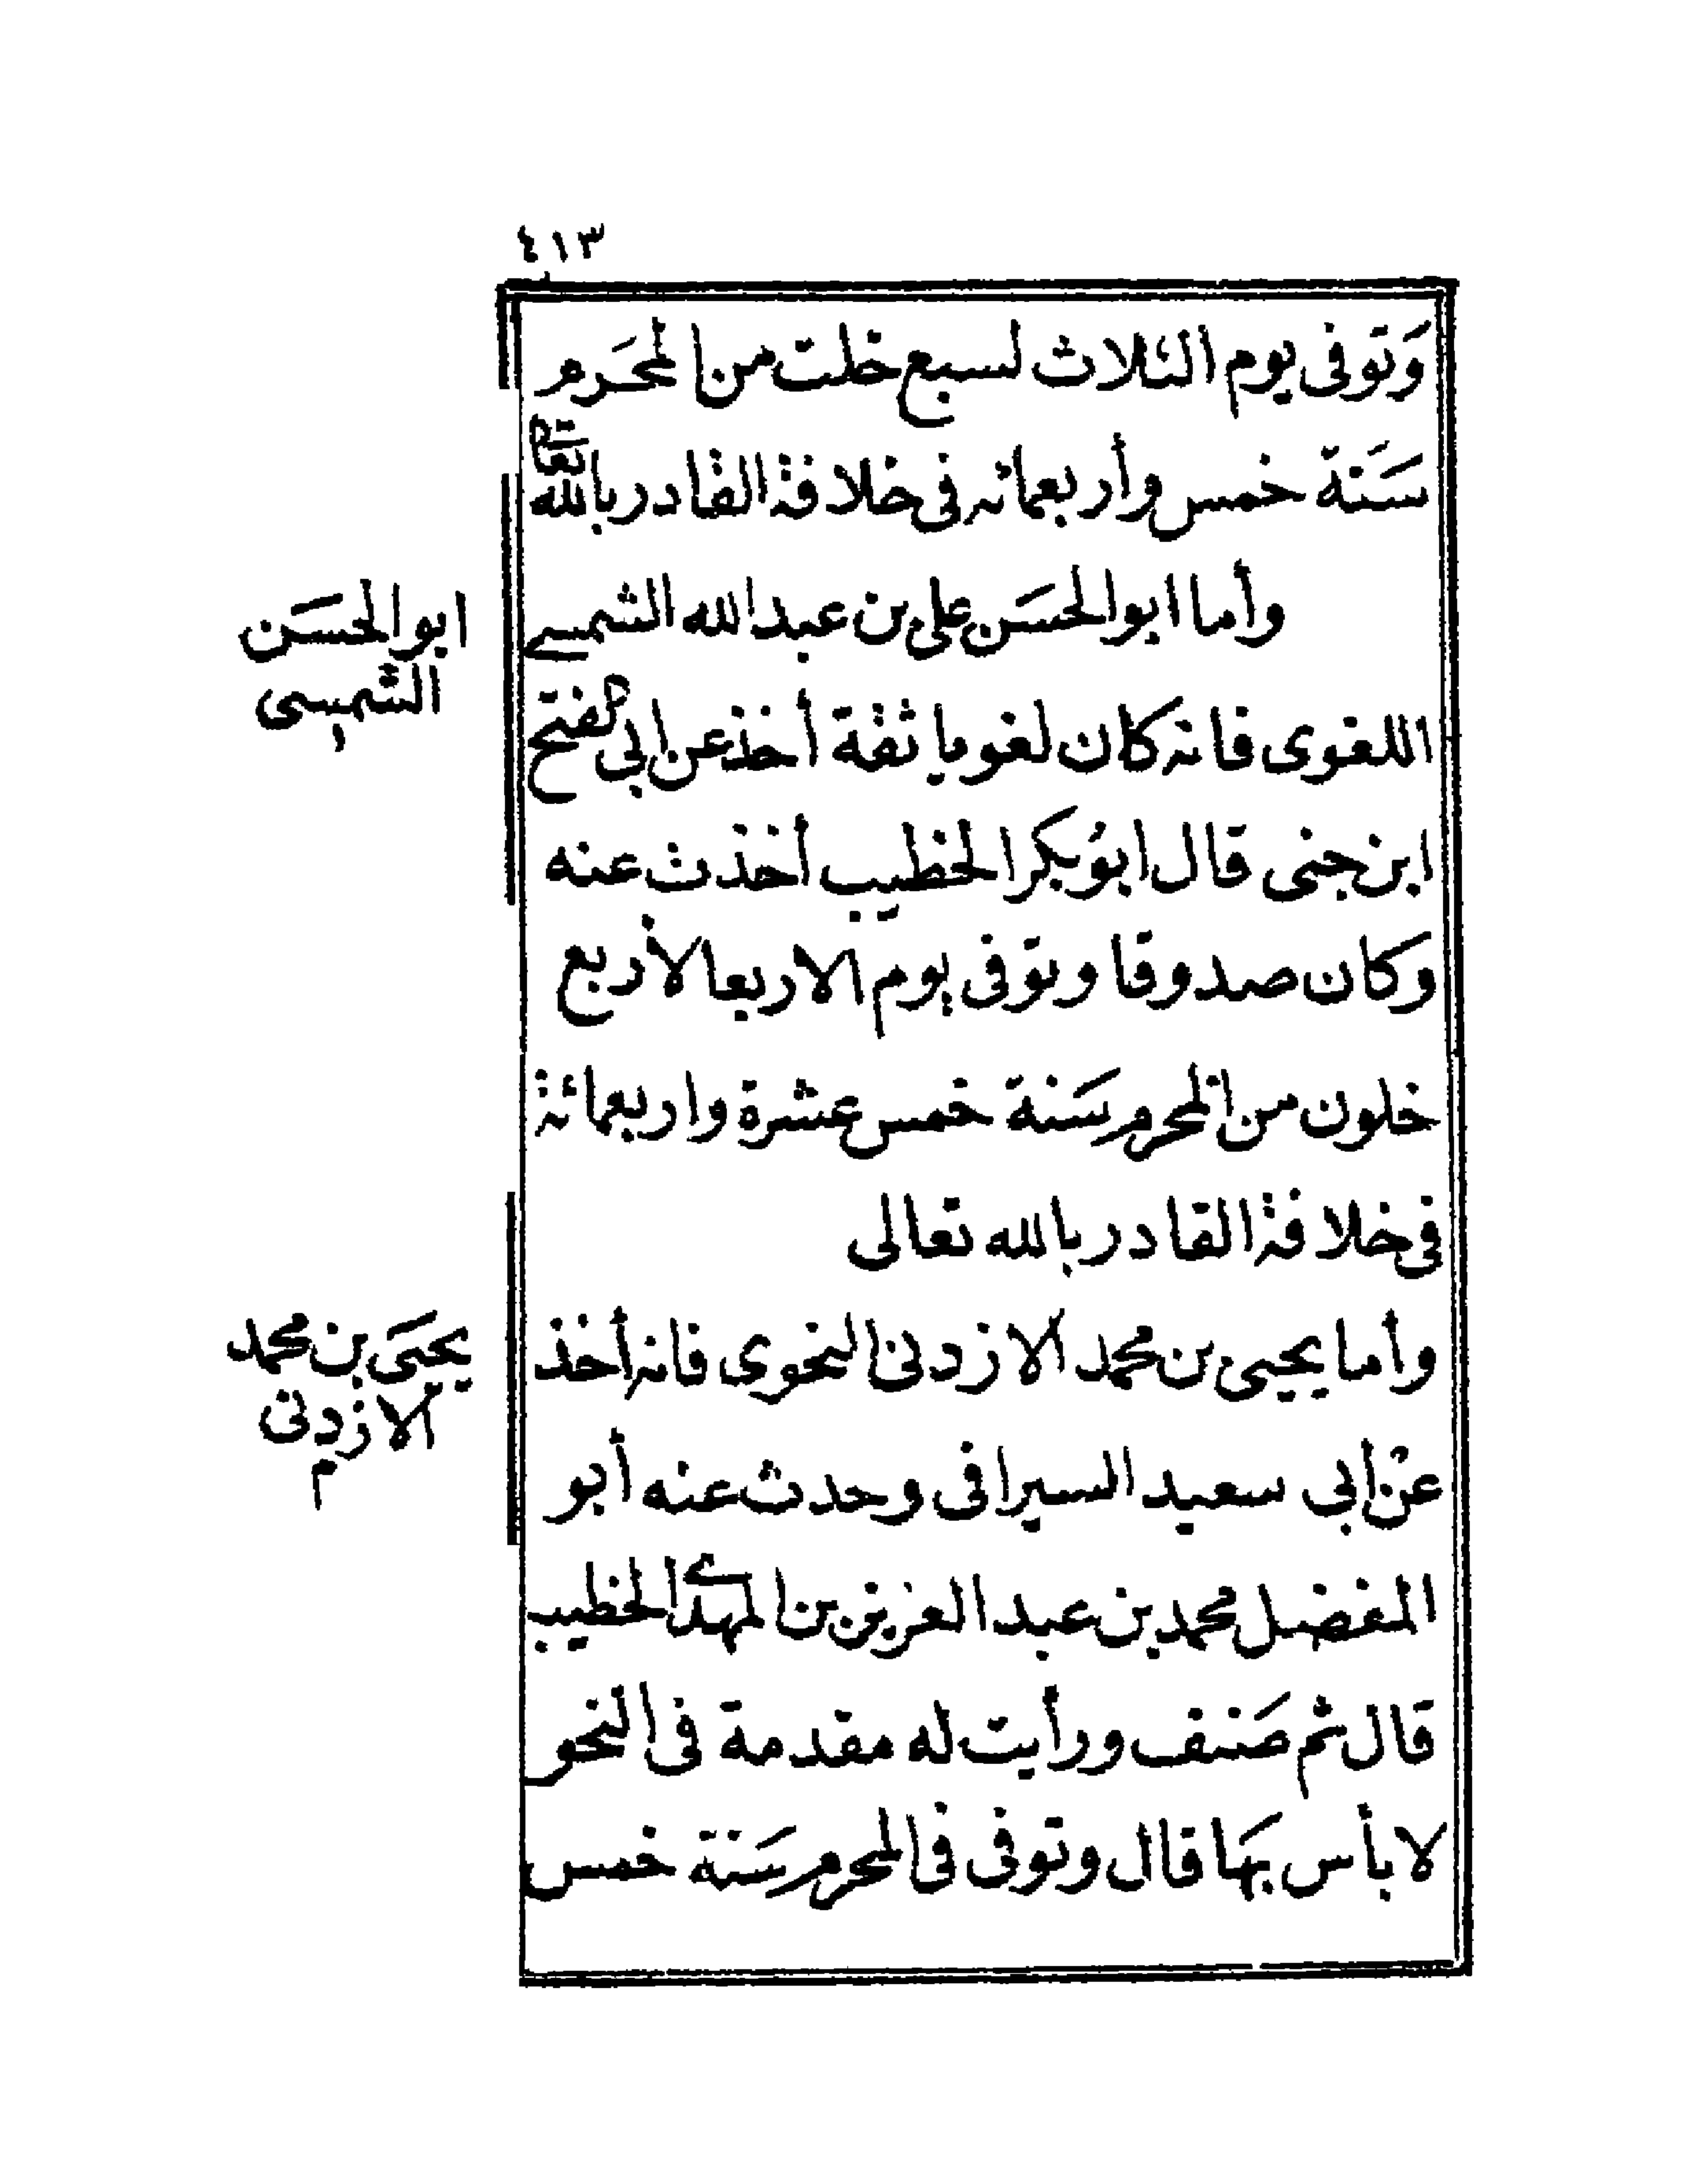 ٤١٣
وَتوفى يوم الثلاث لسبع خلت من المحَرم
سَنة خمس وأربعمائه فى خلافة القادر بالله تعا
وأما ابوالحسَن على بن عبدالله الشمسي
ابوالحسَن
الشمسى
اللغوى فانه كان لغويا ثقة أخذ عن ابي الفتح
ابن جنى قال ابوُبكر الخطيب أخذت عنه
وكان صدوقا وتوفى يوم الاربعا لأربع
خلون من المحرم سَنة خمس عشرة واربعمائة
فى خلافة القادر بالله تعالى
وأما يحيى بن محمد الازدنى النحوى فانه أخذ
يحيَى بن محمد
الازدنى
م
عنْ ابي سعيد السيرافى وحدث عنه أبو
المفضل محمد بن عبد العزيز بن المهدي الخطيب
قال ثم صَنف ورأيت له مقدمة فى النحو
لا بأس بهَا قال وتوفى فى المحرم سَنة خمس